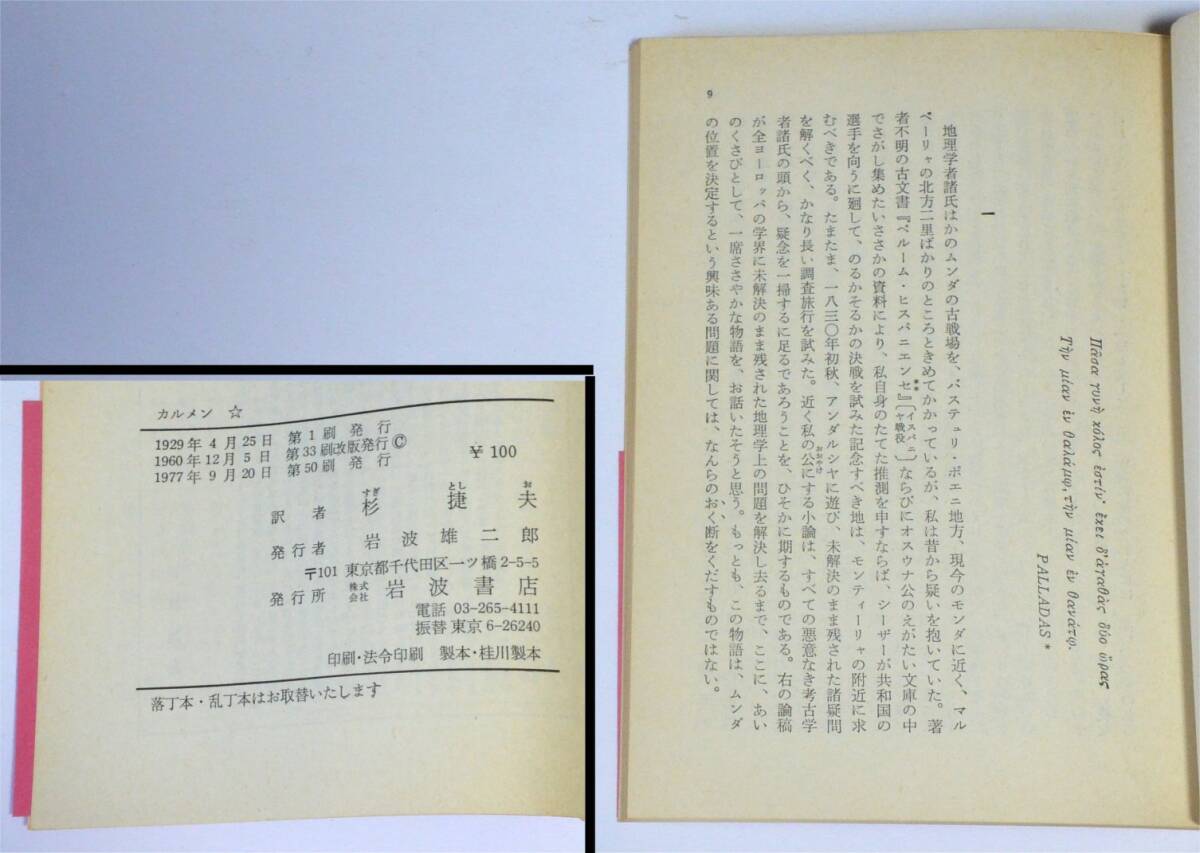 カルメン ☆
1929年 4月25日 第1刷発行
1960年12月 5日 第33刷改版発行 ©
1977年 9月20日 第50刷発行
¥100
訳者 杉捷夫
すぎ とし お
発行者 岩波雄二郎
〒101 東京都千代田区一ツ橋2-5-5
発行所 株式会社 岩波書店
電話 03-265-4111
振替 東京 6-26240
印刷・法令印刷 製本・桂川製本
落丁本・乱丁本はお取替いたします
Πᾶσα γυνὴ χόλος ἐστίν· ἔχει δ'ἀγαθὰς δύο ὥρας
Τὴν μίαν ἐν θαλάμῳ, τὴν μίαν ἐν θανάτῳ.
PALLADAS *
一
地理学者諸氏はかのムンダの古戦場を、バステュリ・ポエニ地方、現今のモンダに近く、マル
ベーリャの北方二里ばかりのところときめてかかっているが、私は昔から疑いを抱いていた。著
者不明の古文書『ベルーム・ヒスパニエンセ』**〔イスパニヤ戦役〕ならびにオスウナ公のえがたい文庫の中
でさがし集めたいささかの資料により、私自身のたてた推測を申すならば、シーザーが共和国の
選手を向うに廻して、のるかそるかの決戦を試みた記念すべき地は、モンティーリャの附近に求
むべきである。たまたま、一八三〇年初秋、アンダルシヤに遊び、未解決のまま残された諸疑問
を解くべく、かなり長い調査旅行を試みた。近く私の公おおやけにする小論は、すべての悪意なき考古学
者諸氏の頭から、疑念を一掃するに足るであろうことを、ひそかに期するものである。右の論稿
が全ヨーロッパの学界に未解決のまま残された地理学上の問題を解決し去るまで、ここに、あい
のくさびとして、一席ささやかな物語を、お話いたそうと思う。もっとも、この物語は、ムンダ
の位置を決定するという興味ある問題に関しては、なんらのおく断をくだすものではない。
9